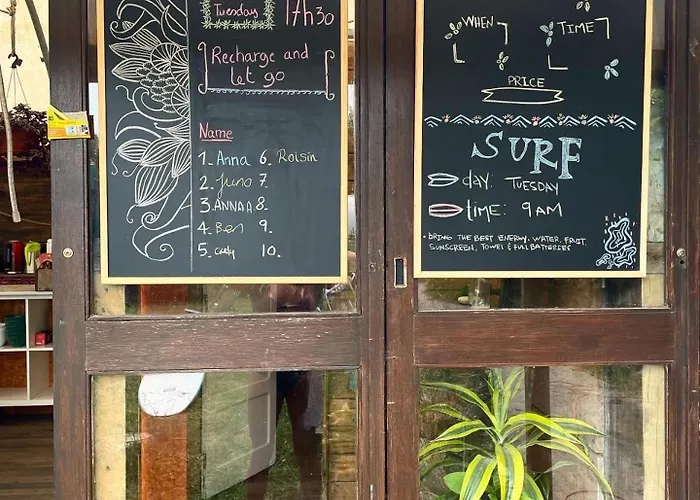 Tuesday 17h30
Recharge and
let go
Name
1. Anna 6. Roisín
2. Juno 7.
3. ANNAA 8.
4. Ben 9.
5. Carly 10.
WHEN TIME
PRICE
SURF
day: TUESDAY
time: 9AM
• BRING THE BEST ENERGY, WATER, FRUIT,
SUNSCREEN, TOWEL & FULL BATTERIES